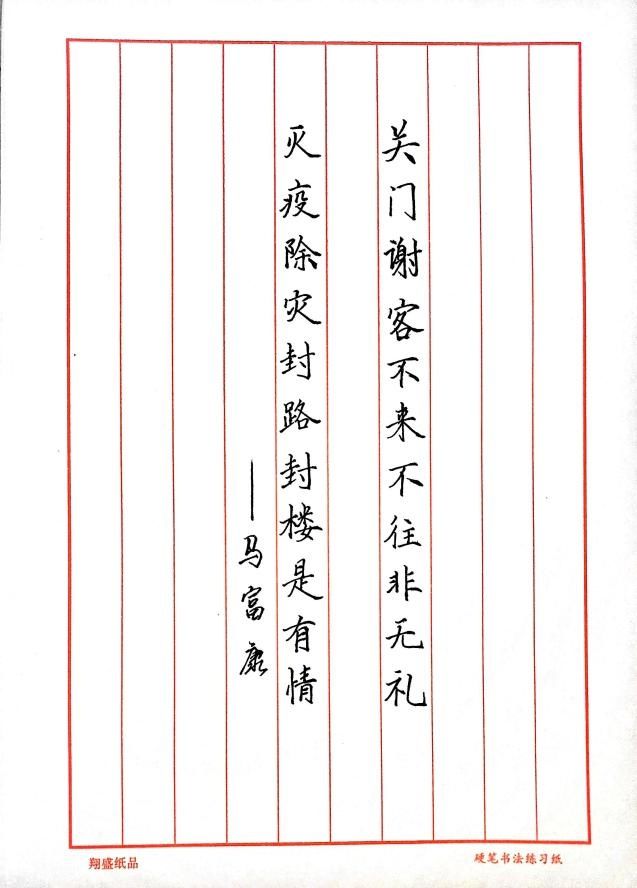 关门谢客不来不往非无礼
灭疫除灾封路封楼是有情
——马富康
翔盛纸品
硬笔书法练习纸